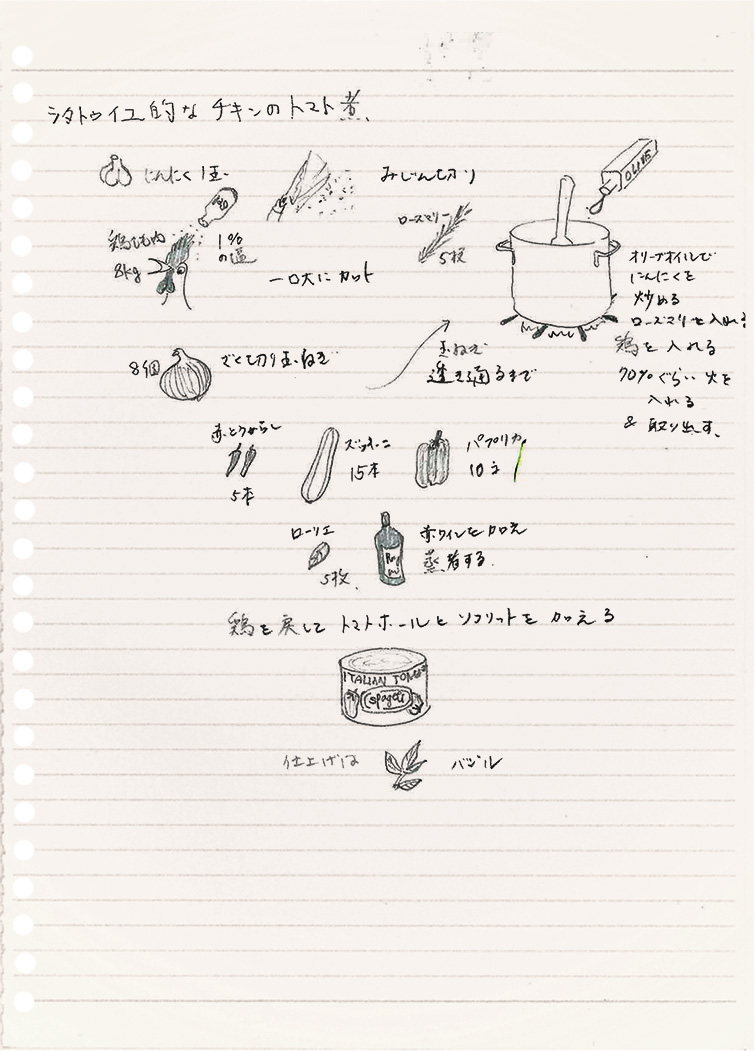 ラタトゥイユ的な チキンのトマト煮
にんにく 1玉
みじん切り
鶏もも肉
8kg
1%
の塩
一口大に カット
ローズマリー
5枝
OLIVE
オリーブオイルで
にんにくを
炒める
ローズマリーを入れる
鶏を入れる
70%ぐらい火を
入れる
& 取り出す。
8個
ざく切り玉ねぎ
玉ねぎ
透き通るまで
赤とうがらし
5本
ズッキーニ
15本
パプリカ
10コ
ローリエ
5枚
赤ワインを加え
蒸煮する
鶏を戻して トマトホールと ソフリットを 加える
ITALIAN TOMATO
spageti
仕上げは
バジル